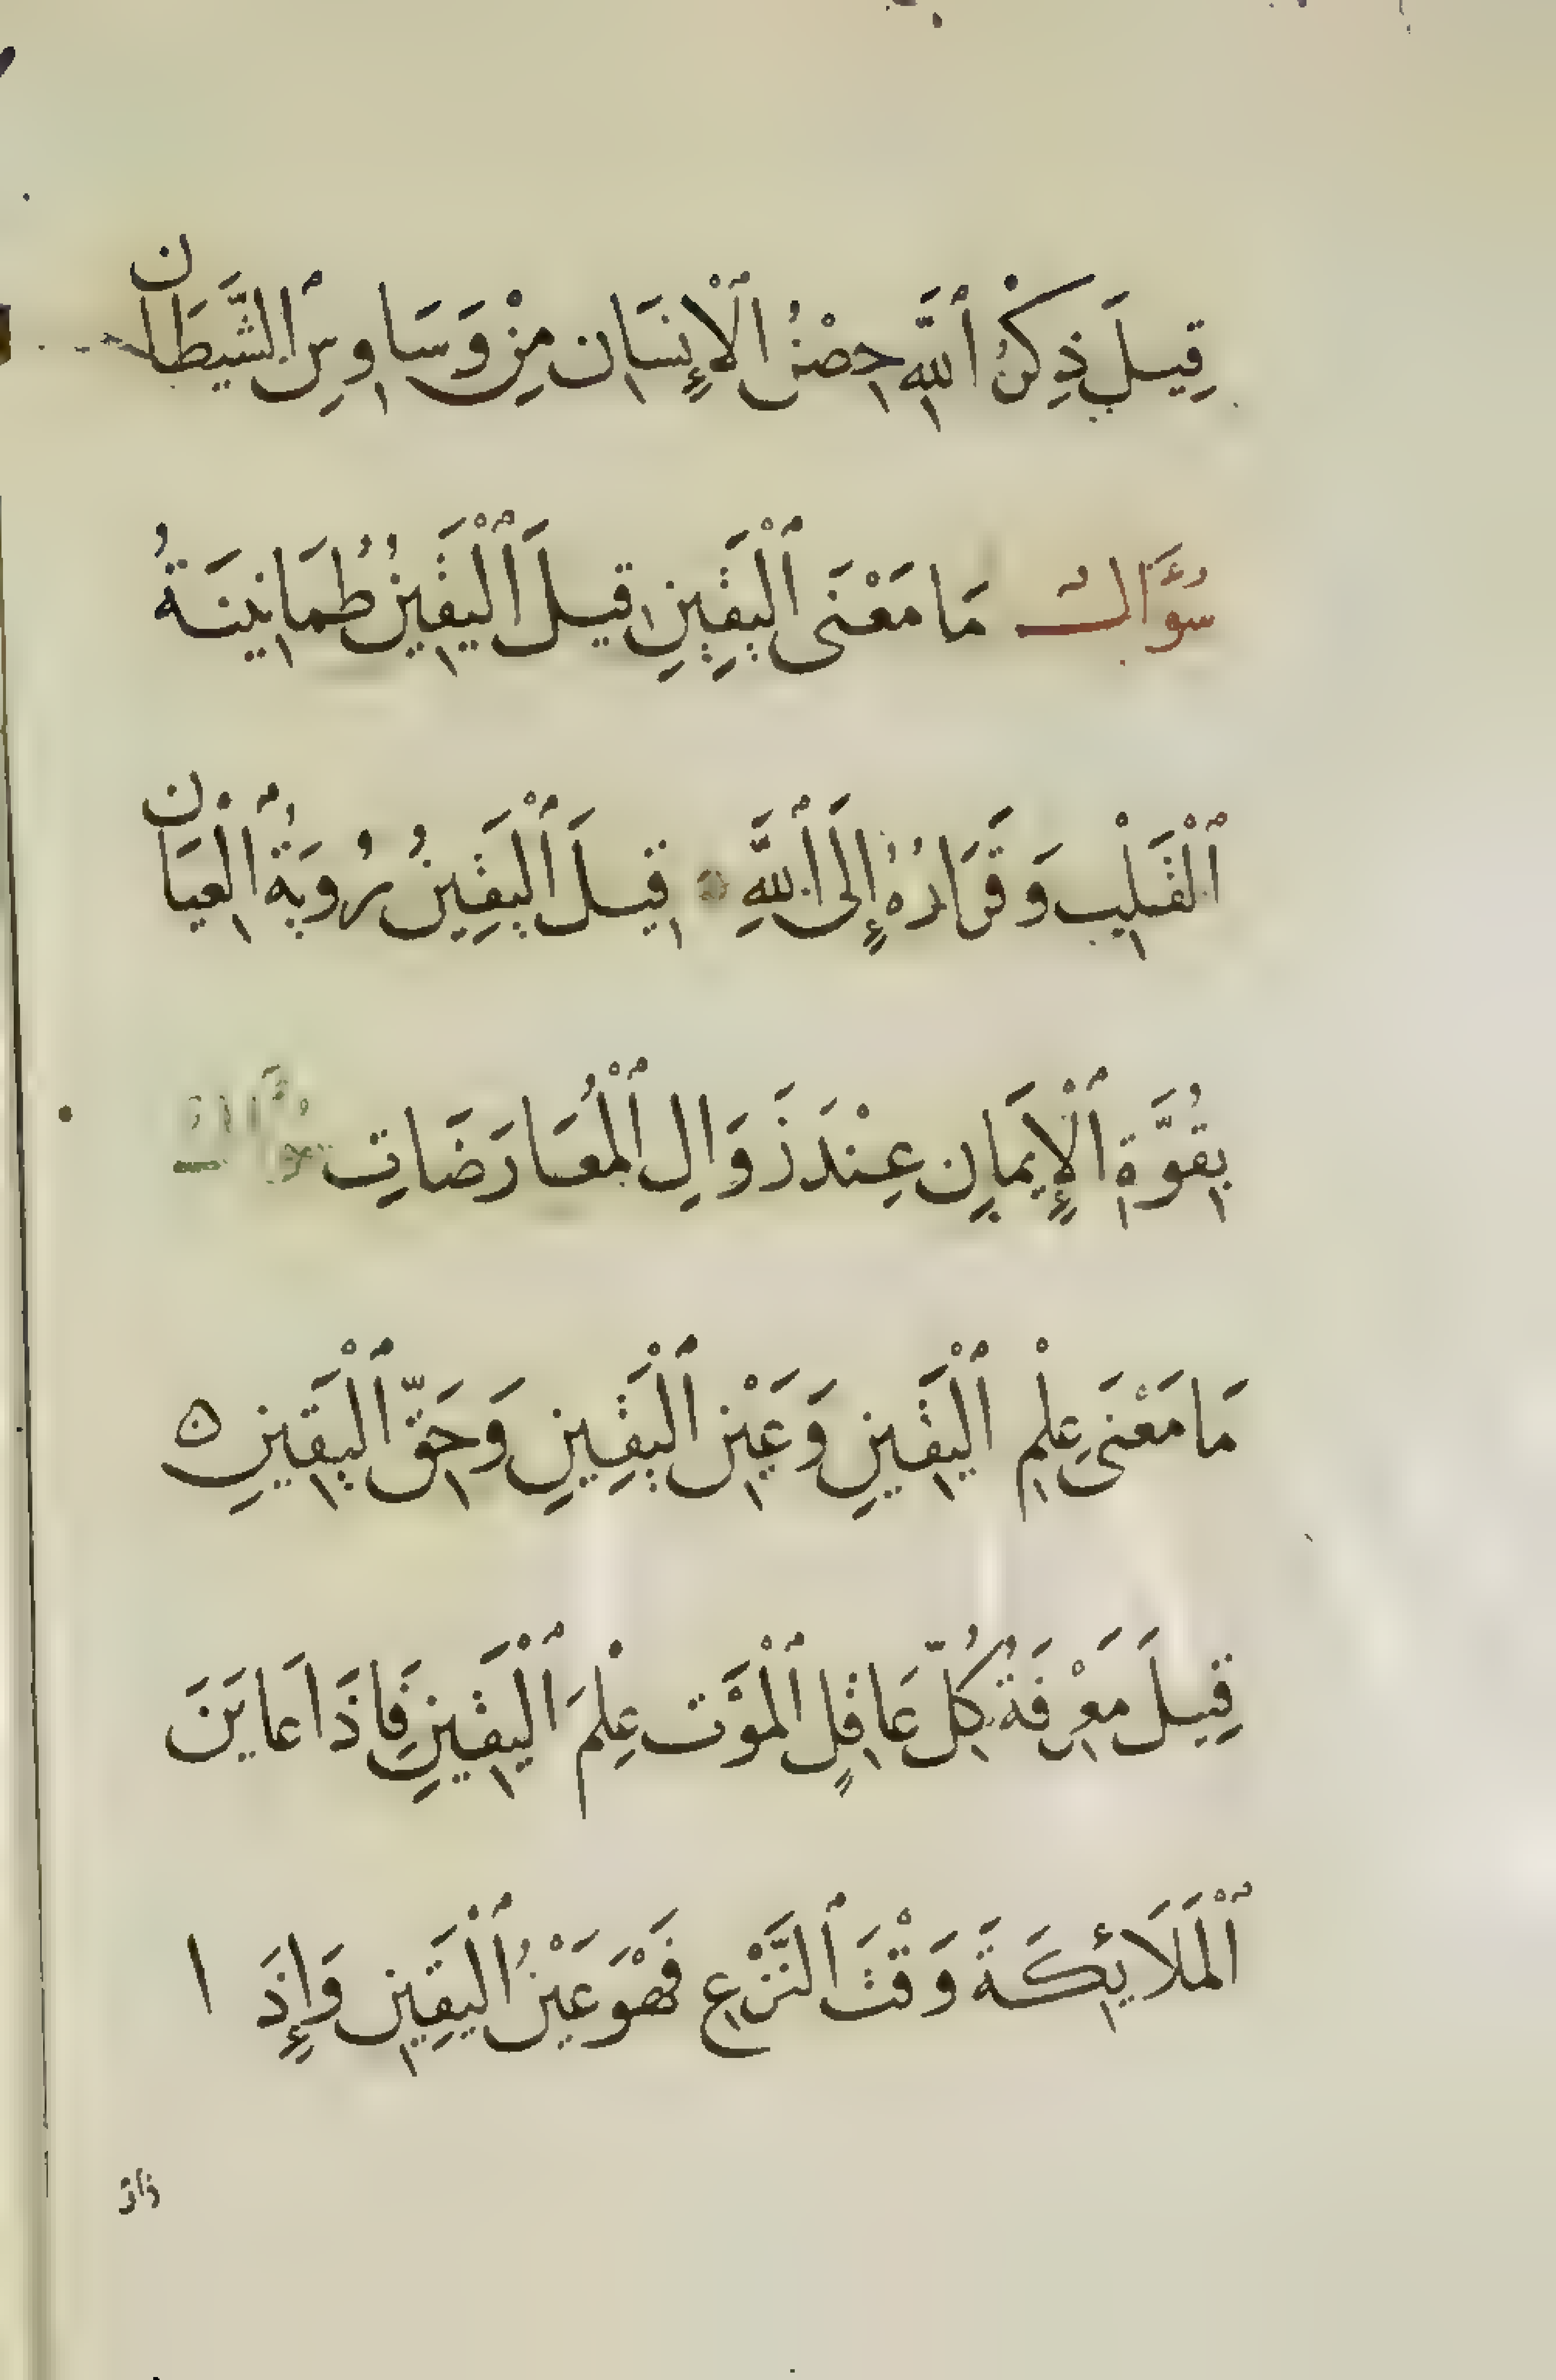 قِيلَ ذِكْرُ ٱللَّهِ حِصْنُ ٱلْإِنسَانِ مِنْ وَسَاوِسِ ٱلشَّيطَانِ
سُؤَّالٌ مَا مَعْنَى ٱلْيَقِينِ قِيلَ ٱلْيَقِينُ طُمَانِينَةُ
ٱلْقَلْبِ وَقَرَارُهُ إِلَى ٱللَّهِ قِيلَ ٱلْيَقِينُ رُويَةُ ٱلْعِيَانِ
بِقُوَّةِ ٱلْإِيمَانِ عِنْدَ زَوَالِ ٱلْمُعَارَضَاتِ سُؤَّالٌ
مَا مَعْنَى عِلْمِ ٱلْيَقِينِ وَعَيْنِ ٱلْيَقِينِ وَحَقِّ ٱلْيَقِينِ ۵
قِيلَ مَعْرِفَةُ كُلِّ عَاقِلٍ ٱلْمَوْتِ عِلْمَ ٱلْيَقِينِ فَإِذَا عَايَنَ
ٱلْمَلَائِكَةَ وَقْتَ ٱلنَّزْعِ فَهْوَ عَيْنُ ٱلْيَقِينِ وَإِذَا
ذاق